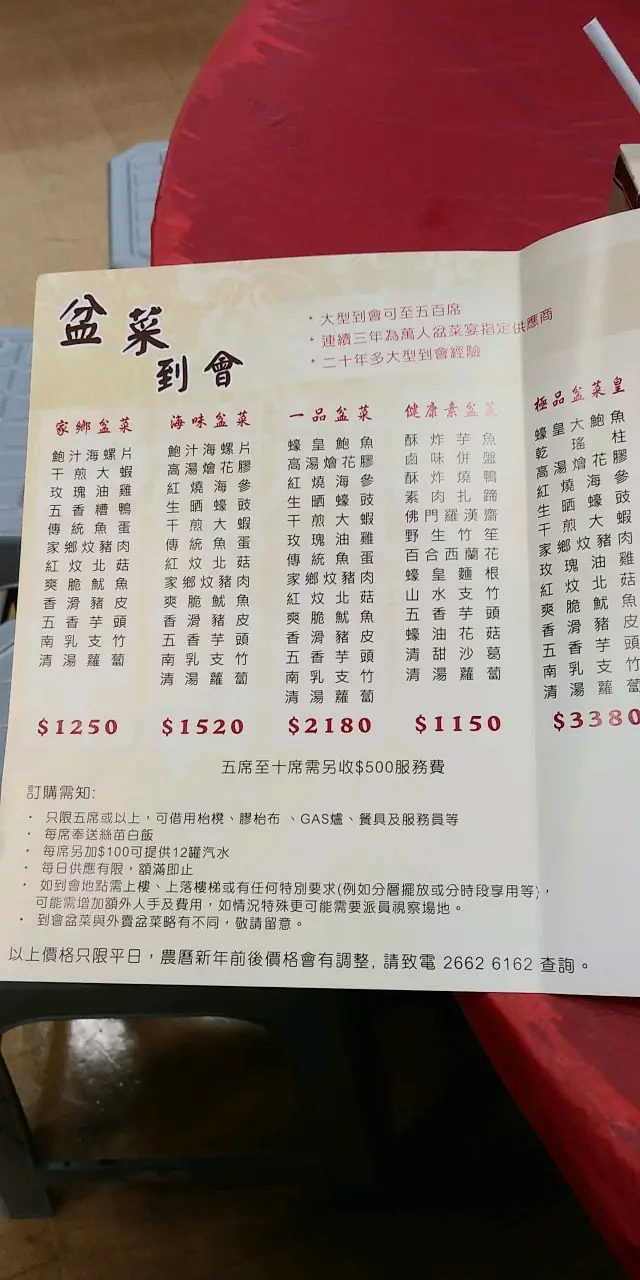 盆菜
到會
* 大型到會可至五百席
* 連續三年為萬人盆菜宴指定供應商
* 二十年多大型到會經驗
家鄉盆菜
鮑汁海螺片
干煎大蝦
玫瑰油雞
五香糟鴨
傳統魚蛋
家鄉炆豬肉
紅炆北菇
爽脆魷魚
香滑豬皮
五香芋頭
南乳支竹
清湯蘿蔔
$1250
海味盆菜
鮑汁海螺片
高湯燴花膠
紅燒海參
生晒蠔豉
干煎大蝦
傳統魚蛋
紅炆北菇
家鄉炆豬肉
爽脆魷魚
香滑豬皮
五香芋頭
南乳支竹
清湯蘿蔔
$1520
一品盆菜
蠔皇鮑魚
高湯燴花膠
紅燒海參
生晒蠔豉
干煎大蝦
玫瑰油雞
傳統魚蛋
家鄉炆豬肉
紅炆北菇
爽脆魷魚
香滑豬皮
五香芋頭
南乳支竹
清湯蘿蔔
$2180
健康素盆菜
酥炸芋魚
鹵味併盤
酥炸燒鴨
素肉扎蹄
佛門羅漢齋
野生竹笙
百合西蘭花
蠔皇麵根
山水支竹
五香芋頭
蠔油花菇
清甜沙葛
清湯蘿蔔
$1150
極品盆菜皇
蠔皇大鮑魚
乾瑤柱
高湯燴花膠
紅燒海參
生晒蠔豉
干煎大蝦
家鄉炆豬肉
玫瑰油雞
紅炆北菇
爽脆魷魚
香滑豬皮
五香芋頭
南乳支竹
清湯蘿蔔
$3380
五席至十席需另收$500服務費
訂購需知:
· 只限五席或以上，可借用枱櫈、膠枱布 、GAS爐、餐具及服務員等
· 每席奉送絲苗白飯
· 每席另加$100可提供12罐汽水
· 每日供應有限，額滿即止
· 如到會地點需上樓、上落樓梯或有任何特別要求(例如分層擺放或分時段享用等)，
可能需增加額外人手及費用，如情況特殊更可能需要派員視察場地。
· 到會盆菜與外賣盆菜略有不同，敬請留意。
以上價格只限平日，農曆新年前後價格會有調整, 請致電 2662 6162 查詢。